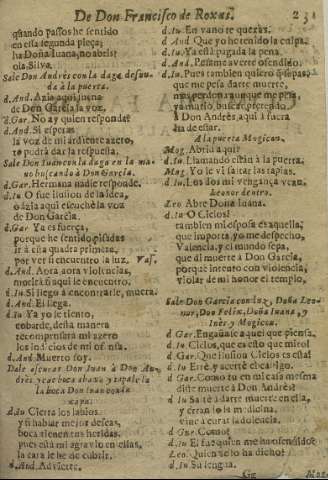 De Don Francisco de Roxas.
quando passos he sentido
en esta segunda pieça;
ha Doña Iuana, no abris?
ola, Silva.
Sale Don Andrès con la daga desnu-
da à la puerta.
d. And. Azia aqui suena
de Don Garcia la voz.
d. Gar. No ay quien responda?
d. And. Si esperas
la voz de mi ardiente azero,
te podrà dar la respuesta.
Sale Don Iuan con la daga en la ma-
no buscando à Don Garcia.
d. Gar. Hermana nadie responde.
d. Iu. O fue ilusion de la idea,
o àzia aqui escuchè la voz
de Don Garcia.
d. Gar. Ya es fuerça,
porque he sentido pisadas
ir à esta quadra primera,
por ver si encuentro la luz. Vas.
d. And. Aora aora violencias,
morirà si aqui le encuentro.
d. Iu. Si llego à encontrarle, muera.
d. And. El llega.
d. Iu. Ya yo le siento,
cobarde, desta manera
recompensarà mi azero
los indicios de mi ofensa.
d. And. Muerto soy.
Dale à escuras Don Iuan à Don An-
drès
la boca Don Iuan con la
capa.
d. Iu. Cierra los labios,
y si hablar mejor deseas,
boca tienen tus heridas,
pues està mi agravio en ellas,
la cara le he de cubrir.
d. And. Advierte,
d. Iu. En vano te quexas.
d. And. Que yo he tenido la culpa.
d. Iu. Ya està pagada la pena.
d. And. Pesame averte ofendido.
d. Iu. Pues tambien quiero que sepas,
que me pesa darte muerte,
mas perdona aunque me pesa,
ya muriò, buscar pretendo
à Don Andrès, aqui à fuera
ha de estar.
A la puerta Mogicon.
Mog. Abrid aqui?
d. Iu. Llamando estàn à la puerta.
Mog. Yo le vi saltar las tapias.
d. Iu. Los dos mi vengança vean.
Leonor dentro.
Leo. Abre Doña Iuana.
d. Iu. O Cielos!
tambien mi esposa es aquella,
que importa, yo me despecho,
Valencia, y el mundo sepa,
que dì muerte à Don Garcia,
porque intentò con violencia,
violar de mi honor el templo,
Sale Don Garcia con luz, Doña Leo-
nor, Don Felix, Doña Iuana, y
Inès, y Mogicon.
d. Gar. Engañase aqui que piensa,
d. Iu. Cielos, que es esto que miro!
d. Gar. Que ilusion Cielos es esta!
d. Iu. Errè, y acertè
d. Gar. Como tu en mi casa mesma
diste muerte à Don Andrès?
d. Iu. Salì à darte muerte en ella,
y
vine à curar la dolencia.
d. Gar.
d. Iu. El fue quien me ha ofendido.
Leo. Quien te lo ha dicho?
d. Iu. Su lengua.